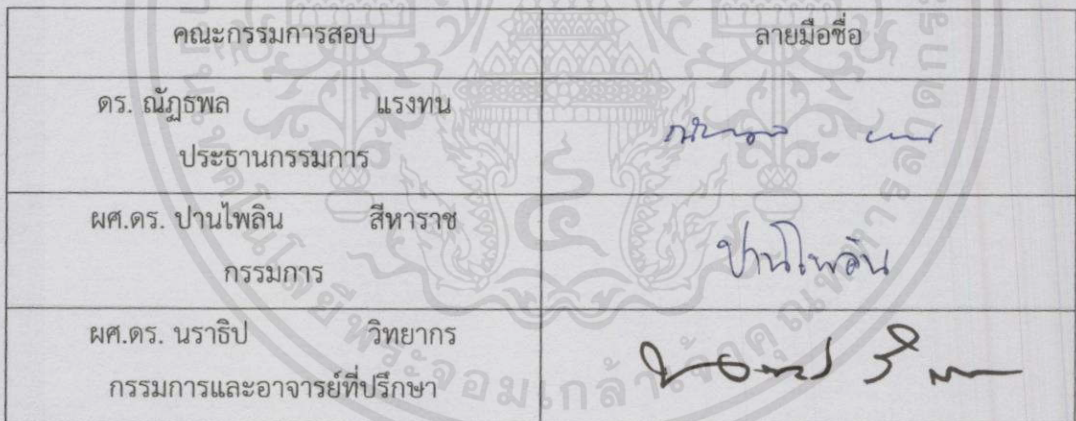 คณะกรรมการสอบ ลายมือชื่อ
ดร. ณัฏธพล แรงทน
ประธานกรรมการ
ผศ.ดร. ปานไพลิน สีหาราช
กรรมการ
ปานไพลิน
ผศ.ดร. นราธิป วิทยากร
กรรมการและอาจารย์ที่ปรึกษา